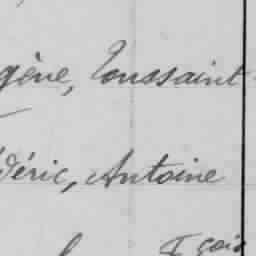 gène, Toussaint
déric, Antoine